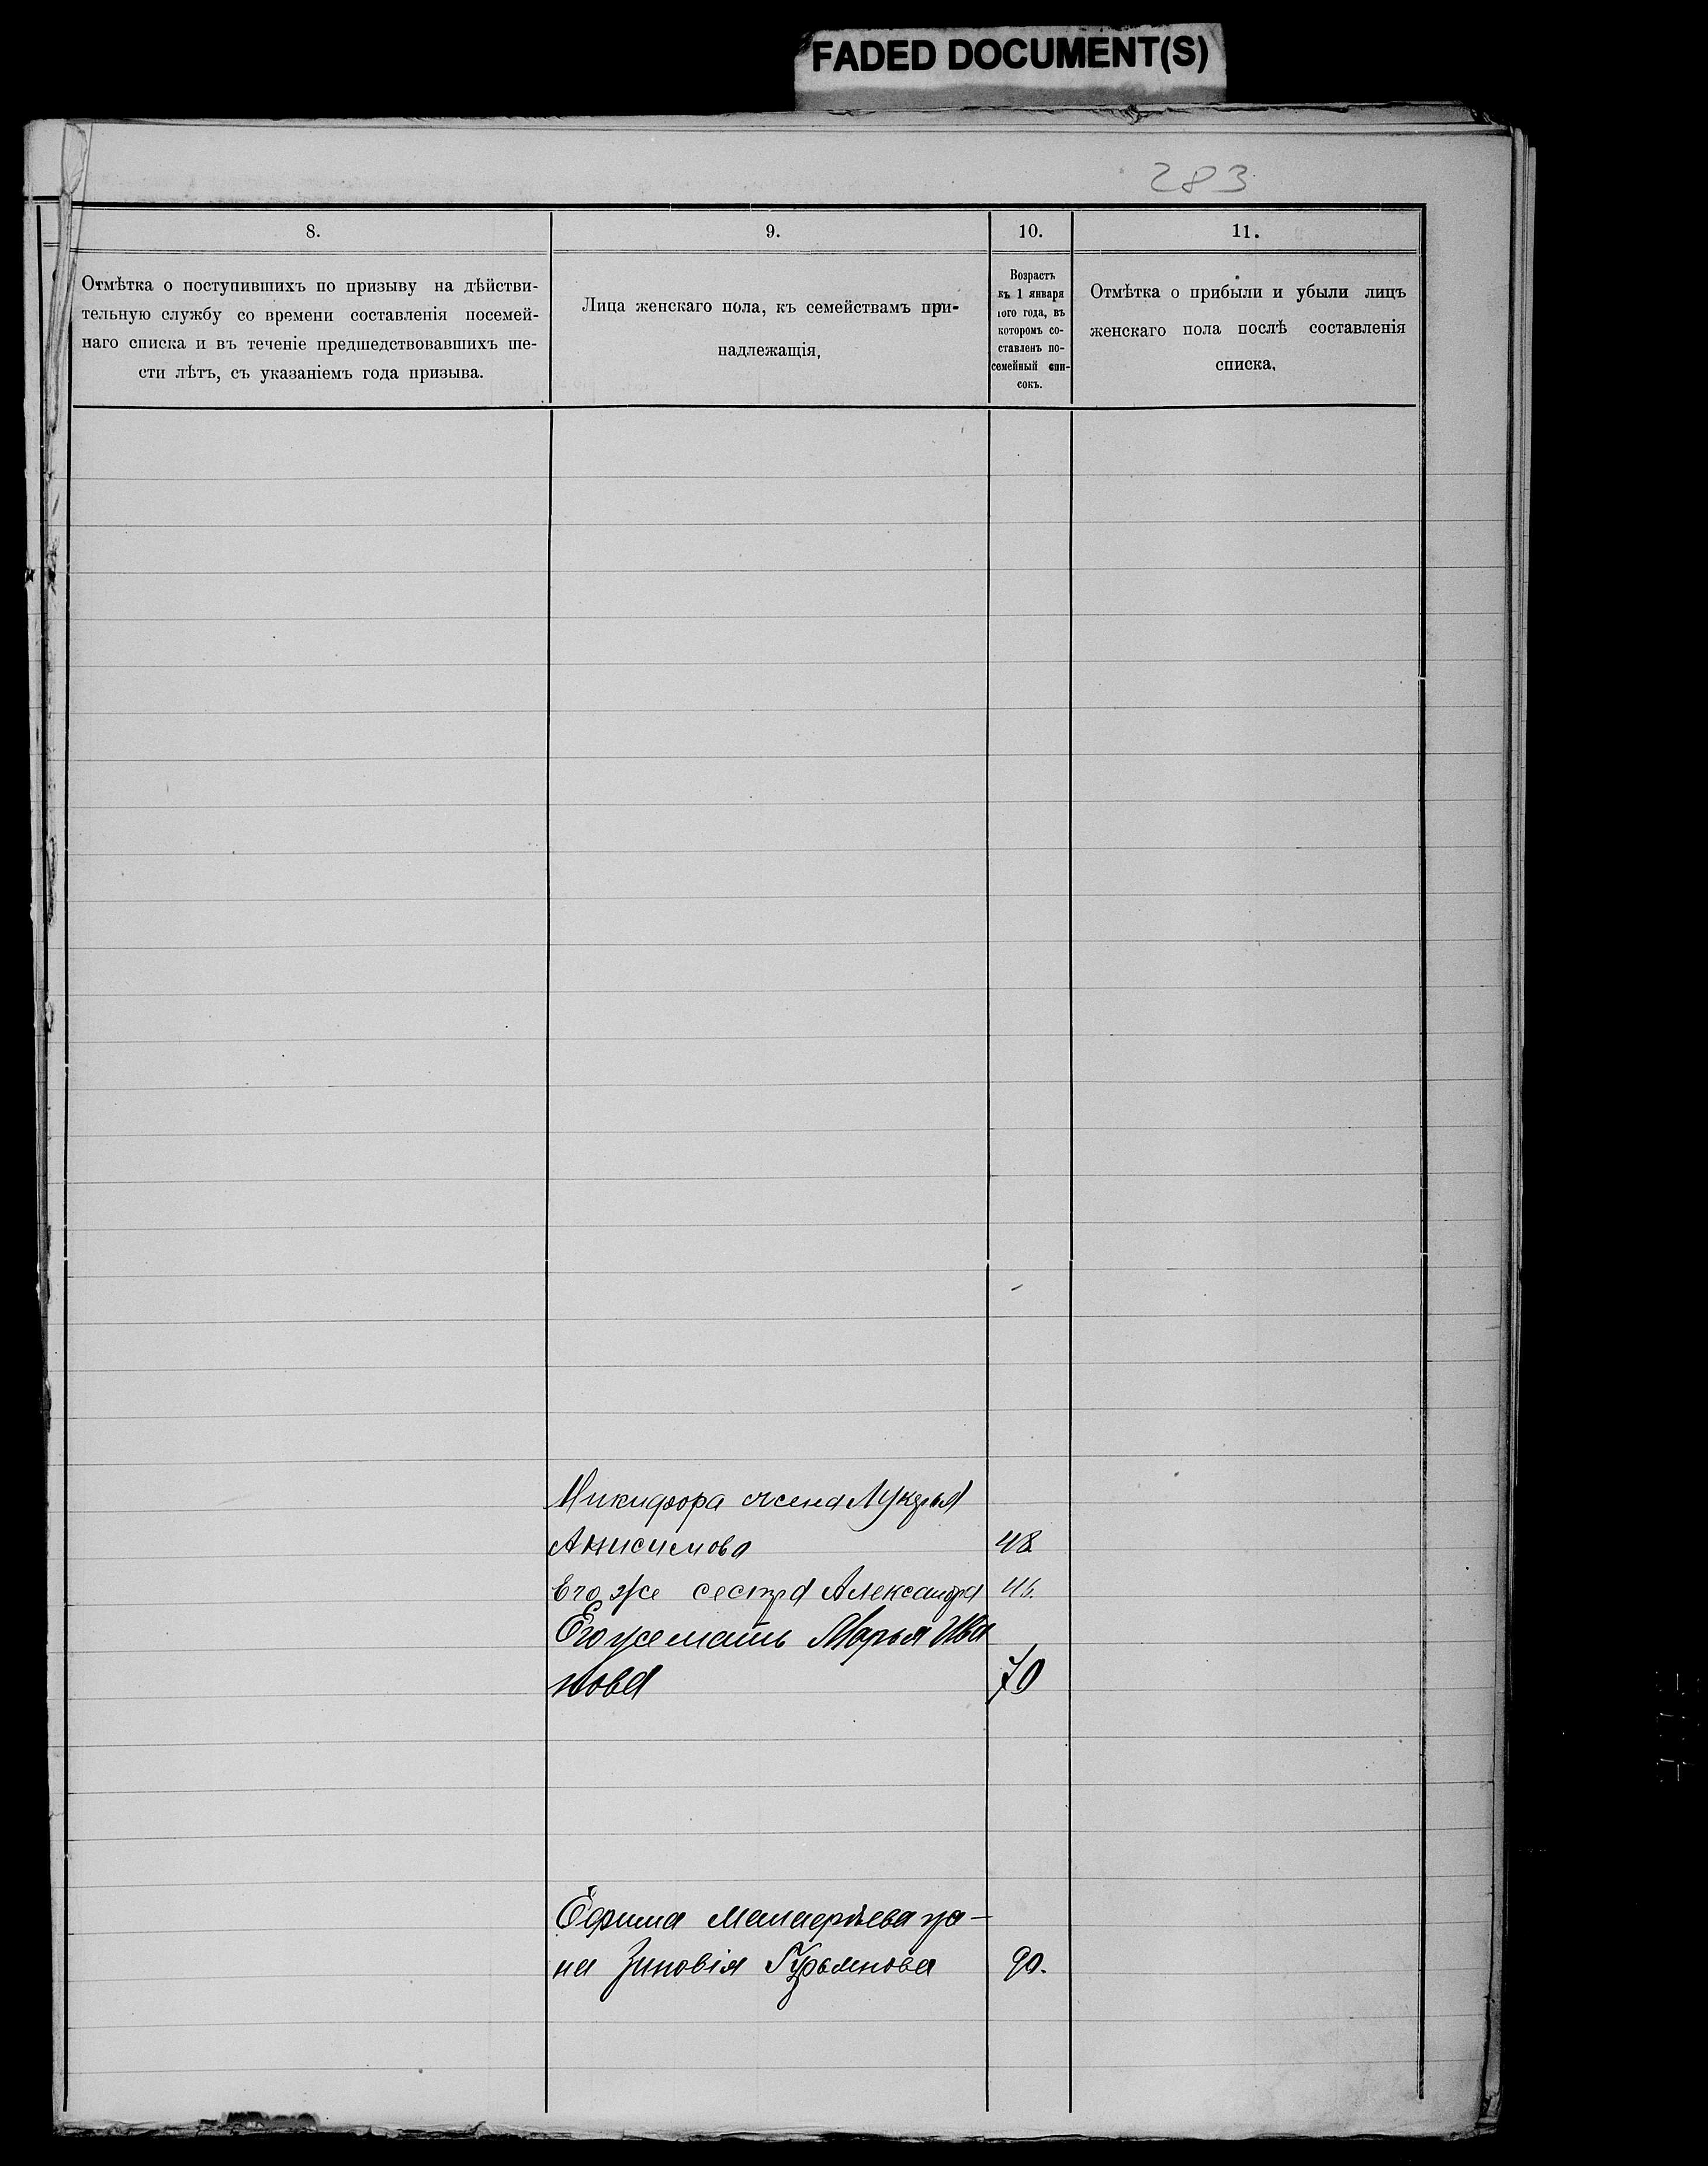 FADED DOCUMENT(S)
283
8.
9.
10.
11.
Отмѣтка о поступившихъ по призыву на дѣйстви-
тельную службу со времени составленія посемей-
наго списка и въ теченіе предшедствовавшихъ ше-
сти лѣтъ, съ указаніемъ года призыва.
Лица женскаго пола, къ семействамъ при-
надлежащія,
Возрастъ
къ 1 января
того года, въ
которомъ со-
ставленъ по-
семейный спи-
сокъ.
Отмѣтка о прибыли и убыли лицъ
женскаго пола послѣ составленія
списка.
Никифора жена Лукерья
Анисимова 48
Его же сестра Александра
Его же мать Марья Ива
нова 70
Ефима жа-
на Зиновія Гурьянова 90.